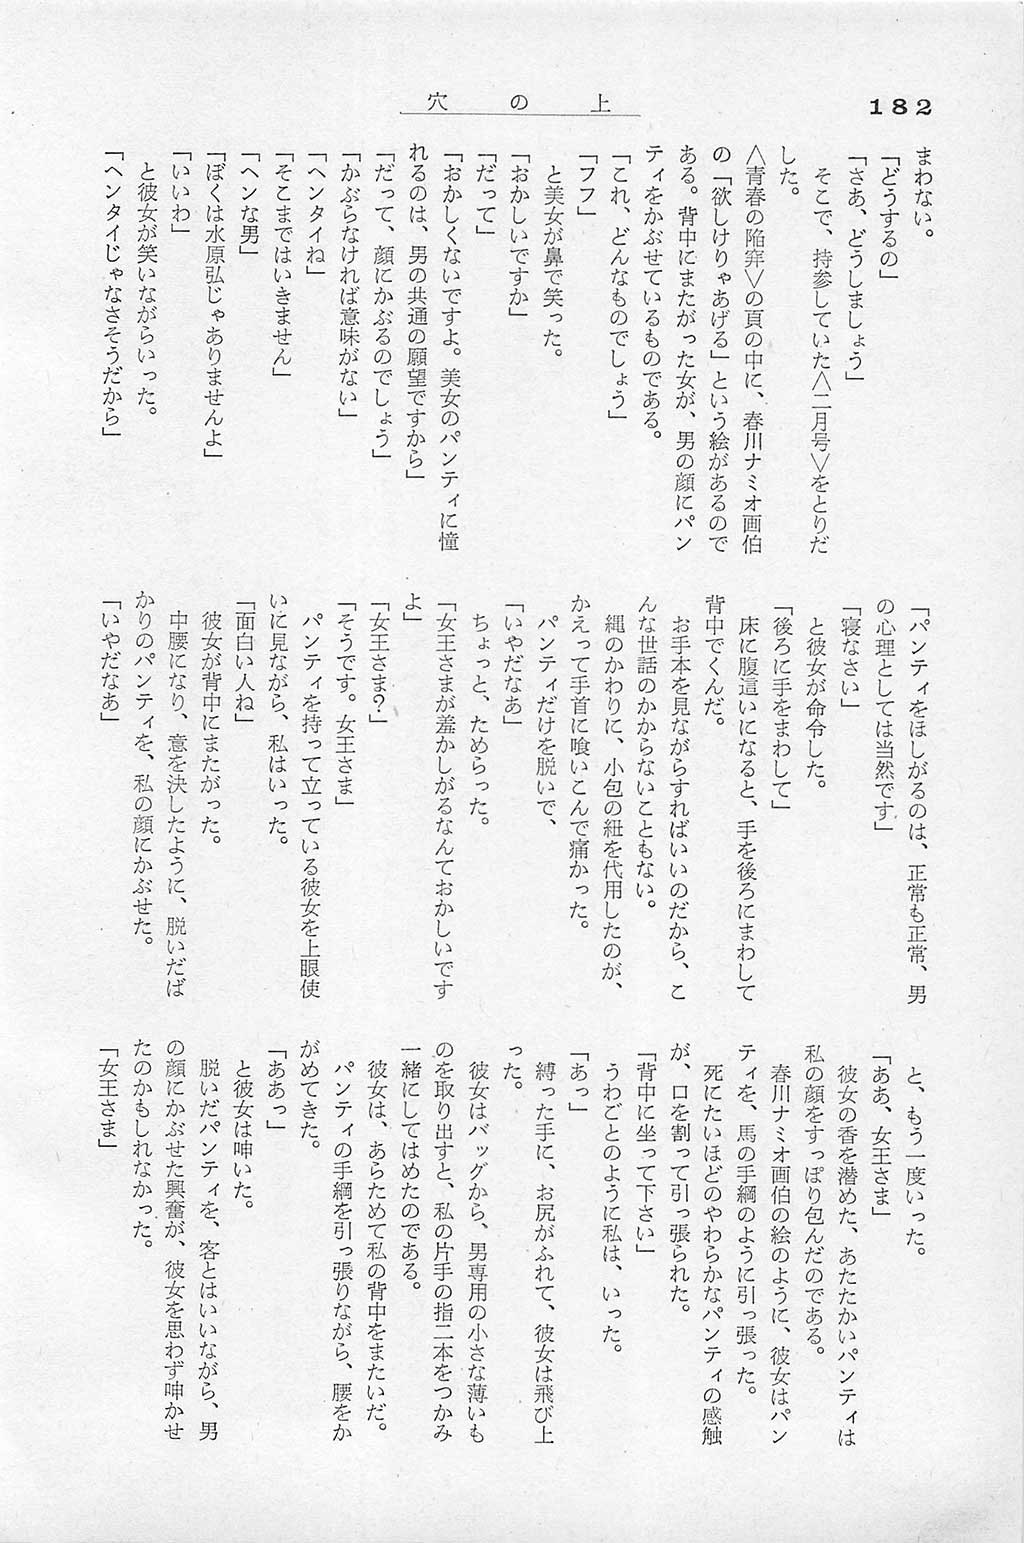 182
穴の上
まわない。
「どうするの」
「さあ、どうしましょう」
　そこで、持参していた〈二月号〉をとりだ
した。
〈青春の陥穽〉の頁の中に、春川ナミオ画伯
の「欲しけりゃあげる」という絵があるので
ある。背中にまたがった女が、男の顔にパン
ティをかぶせているものである。
「これ、どんなものでしょう」
「フフ」
　と美女が鼻で笑った。
「おかしいですか」
「だって」
「おかしくないですよ。美女のパンティに憧
れるのは、男の共通の願望ですから」
「だって、顔にかぶるのでしょう」
「かぶらなければ意味がない」
「ヘンタイね」
「そこまではいきません」
「ヘンな男」
「ぼくは水原弘じゃありませんよ」
「いいわ」
　と彼女が笑いながらいった。
「ヘンタイじゃなさそうだから」
「パンティをほしがるのは、正常も正常、男
の心理としては当然です」
「寝なさい」
　と彼女が命令した。
「後ろに手をまわして」
　床に腹這いになると、手を後ろにまわして
背中でくんだ。
　お手本を見ながらすればいいのだから、こ
んな世話のかからないこともない。
　縄のかわりに、小包の紐を代用したのが、
かえって手首に喰いこんで痛かった。
　パンティだけを脱いで、
「いやだなあ」
　ちょっと、ためらった。
「女王さまが羞かしがるなんておかしいです
よ」
「女王さま？」
「そうです。女王さま」
　パンティを持って立っている彼女を上眼使
いに見ながら、私はいった。
「面白い人ね」
　彼女が背中にまたがった。
　中腰になり、意を決したように、脱いだば
かりのパンティを、私の顔にかぶせた。
「いやだなあ」
　と、もう一度いった。
「ああ、女王さま」
　彼女の香を潜めた、あたたかいパンティは
私の顔をすっぽり包んだのである。
　春川ナミオ画伯の絵のように、彼女はパン
ティを、馬の手綱のように引っ張った。
　死にたいほどのやわらかなパンティの感触
が、口を割って引っ張られた。
「背中に坐って下さい」
　うわごとのように私は、いった。
「あっ」
　縛った手に、お尻がふれて、彼女は飛び上
った。
　彼女はバッグから、男専用の小さな薄いも
のを取り出すと、私の片手の指二本をつかみ
一緒にしてはめたのである。
　彼女は、あらためて私の背中をまたいだ。
　パンティの手綱を引っ張りながら、腰をか
がめてきた。
「ああっ」
　と彼女は呻いた。
　脱いだパンティを、客とはいいながら、男
の顔にかぶせた興奮が、彼女を思わず呻かせ
たのかもしれなかった。
「女王さま」